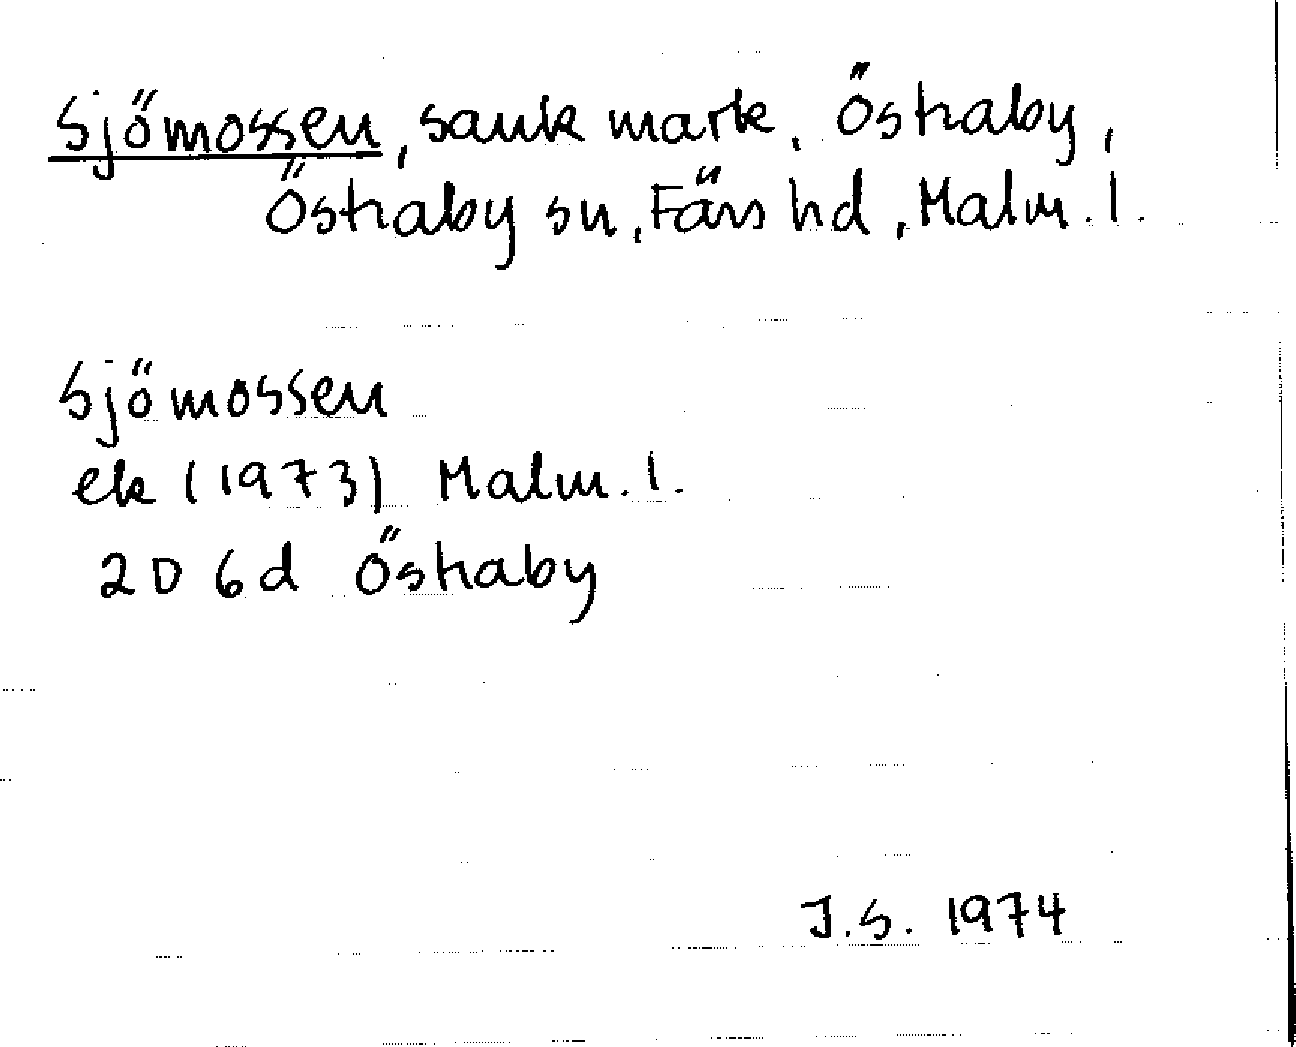 Sjömossen, sank mark, Östraby,
Östraby sn, Färs hd, Malm. l.
Sjömossen
ek (1973) Malm. l.
2D 6d Östraby
J.S. 1974